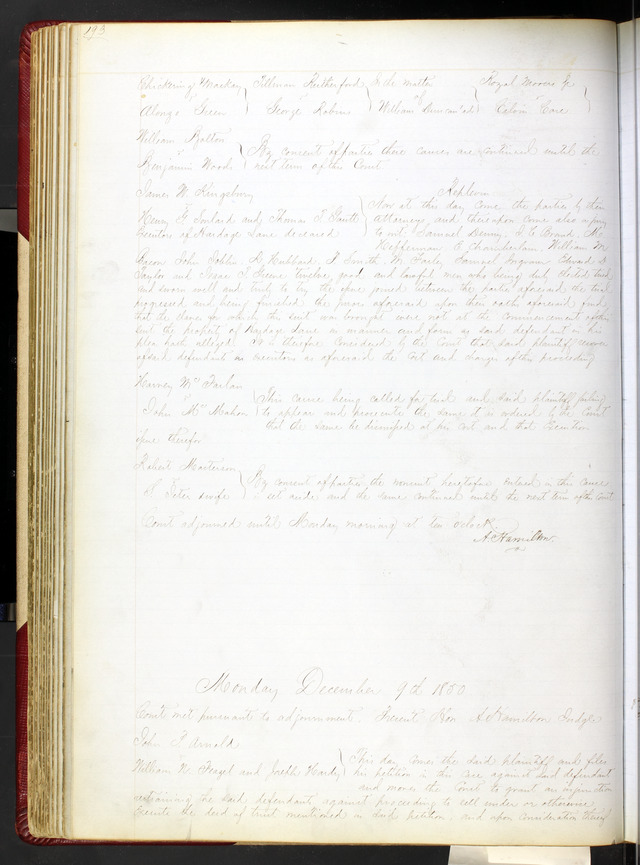 193
Chickering & Mackay Tillman Rutherford In the matter Royal Moores Jr
vs vs of vs
Alonzo Green George Rabien William Calvin Case
William Bolton
vs By concent of parties these causes are continued untill the
Benjamin Woods next term of this Court
James W Kingsbury Replevin
vs Now at this day come the parties by their
Henry G and Thomas T Gantt Attorneys and thereupon come also a jury
Executors of Hardage Lane deceased to wit Samuel Denny,
Hefferman C Chamberlain William M
Bacon John Jobbe R Hubbard J Smith M Farley Samuel Ingram Edward D
Taylor and Isaac T Greene twelve good and lawful men who being duly Elected tried
and sworn well and truly to try the issue joined between the parties aforesaid the trial
progressed and being finished the jurors aforesaid upon their oaths aforesaid find
that the slaves for which the suit was brought were not at the commencement of this
suit the property of Hardage Lane in manner and form as said defendant in his
plea hath alleged It is therefore considered by the Court that said plaintiff recover
of said defendant as executors as aforesaid the cost and charges of this proceeding
Harney McFarlan
vs This cause being called for trial and said plaintiff failing
John McMahon to appear and prosecute the same it is ordered by the Court
that the same be dismissed at his cost and that Execution
issue therefor
Robert Masterson
vs By concent of parties the nonsuit heretofore entered in this cause
is set aside and the same continued until the next term of this Court
Court adjourned until Monday morning at ten oclock
A. Hamilton
Monday December 9th 1850
Court met pursuant to adjournment. Present Hon A Hamilton Judge
John T Arnold
vs This day comes the said plaintiff and files
William W and Joseph Hardy his petition in this case against said defendant
and moves the Court to grant an injunction
restraining the said defendant against proceeding to sell under or otherwise
execute the deed of trust mentioned in said petition, and upon consideration thereof